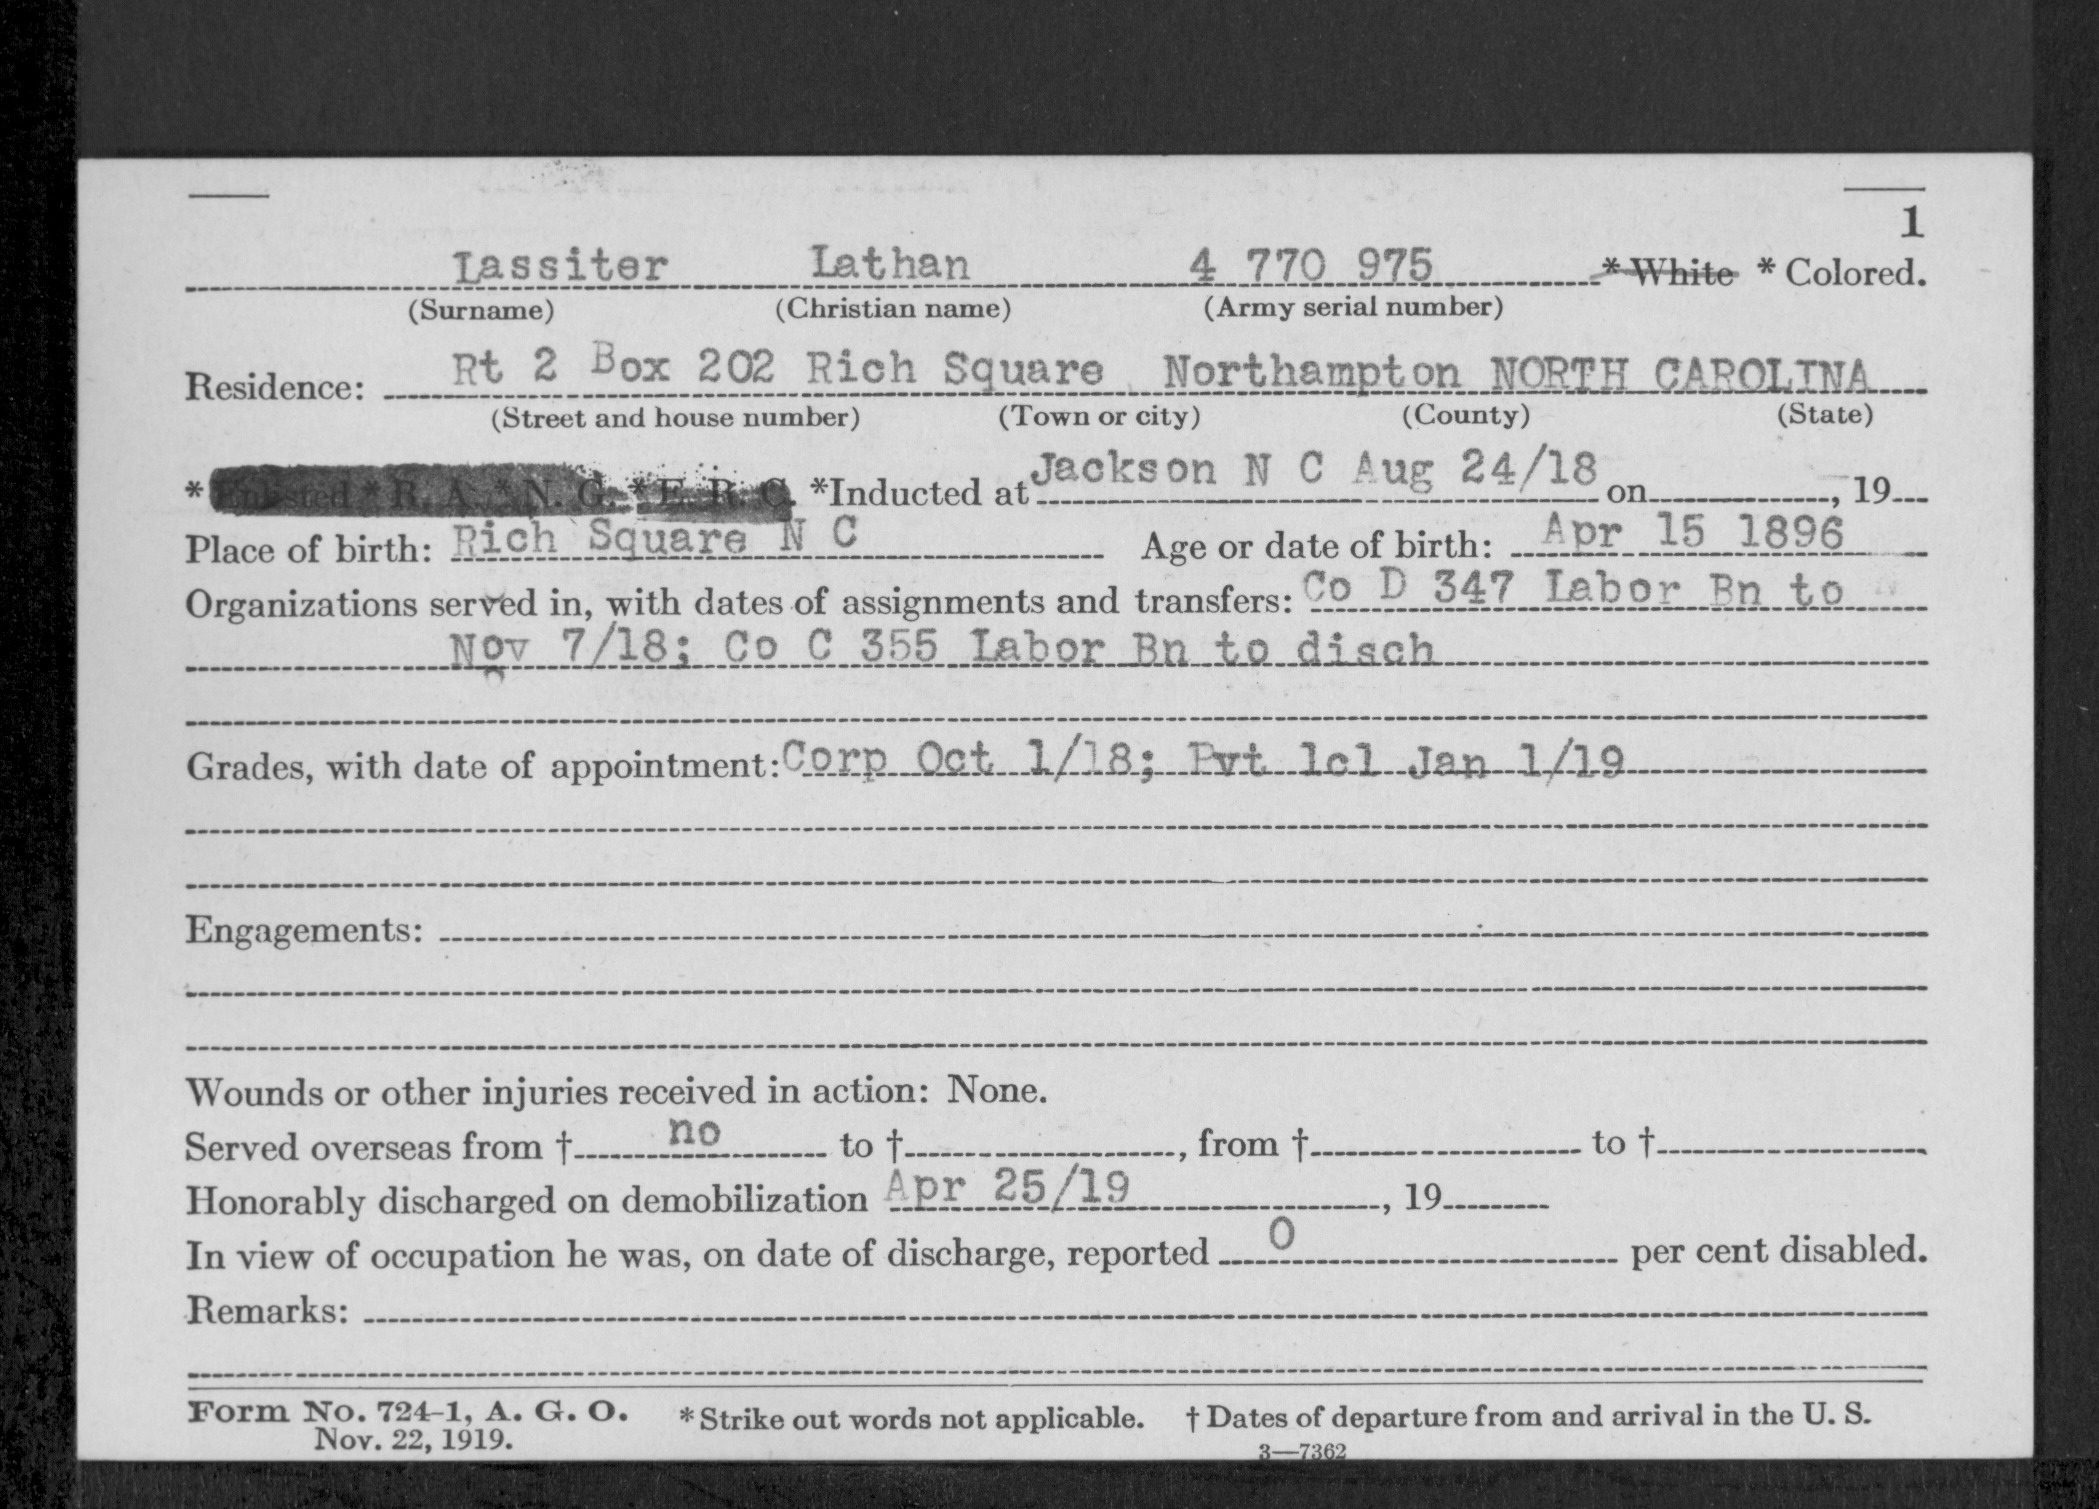 1
Lassiter Lathan 4 770 975 * White * Colored.
(Surname) (Christian name) (Army serial number)
Residence: Rt 2 Box 202 Rich Square Northampton NORTH CAROLINA
(Street and house number) (Town or city) (County) (State)
* Enlisted * R. A. * N. G. * E. R. C. *Inducted at Jackson N C Aug 24/18 on , 19
Place of birth: Rich Square N C Age or date of birth: Apr 15 1896
Organizations served in, with dates of assignments and transfers: Co D 347 Labor Bn to
Nov 7/18; Co C 355 Labor Bn to disch
Grades, with date of appointment: Corp Oct 1/18; Pvt 1cl Jan 1/19
Engagements:
Wounds or other injuries received in action: None.
Served overseas from † no to † , from † to †
Honorably discharged on demobilization Apr 25/19 , 19
In view of occupation he was, on date of discharge, reported 0 per cent disabled.
Remarks:
Form No. 724-1, A. G. O. * Strike out words not applicable. † Dates of departure from and arrival in the U. S.
Nov. 22, 1919. 3—7362